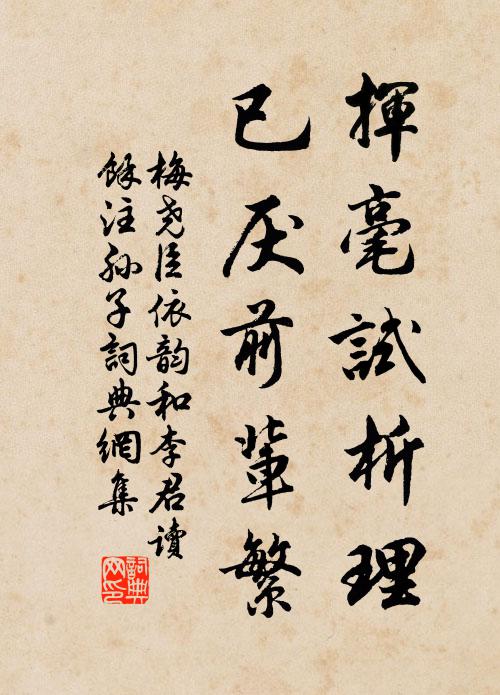 揮毫試析理
已厌前輩繁
梅尧臣依韵和李君讀
馀注孙子詞典網集
詞典网印